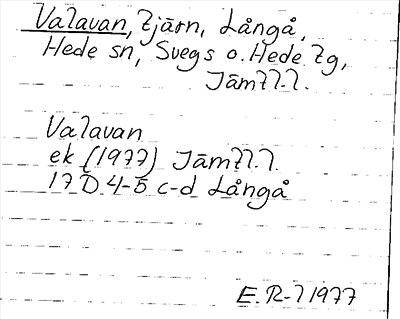 Valavan, Tjärn, Långå,
Hede sn, Svegs o. Hede Tg,
Jämtl. l.
Valavan
ek (1977) Jämtl. l.
17 D 4-5 c-d Långå
E. R-l 1977